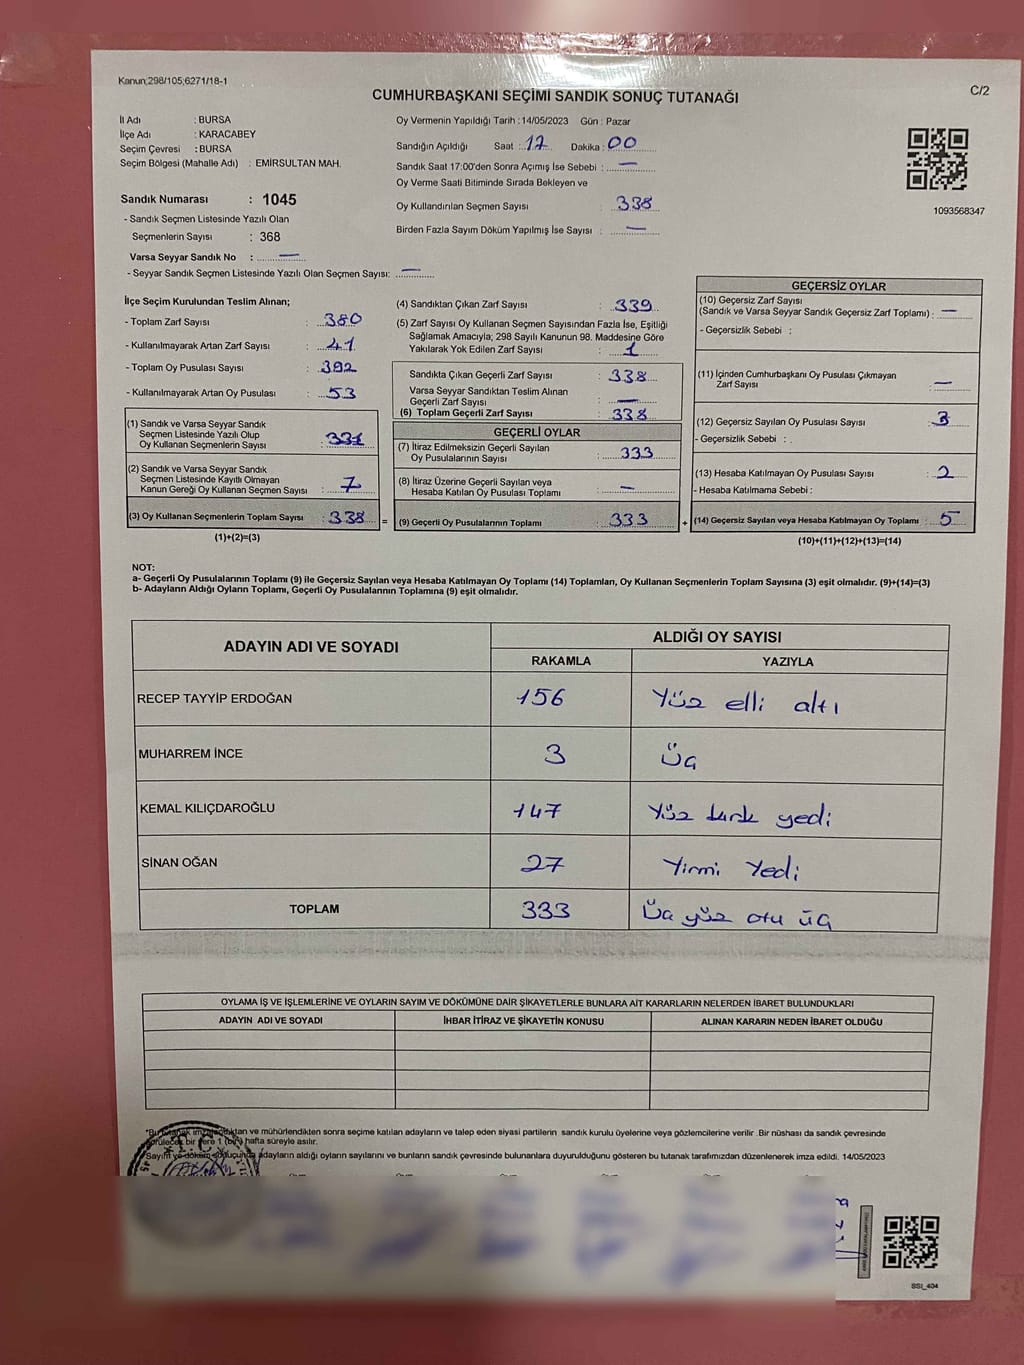 Kanun;298/105,6271/18-1
C/2
CUMHURBAŞKANI SEÇİMİ SANDIK SONUÇ TUTANAĞI
İl Adı : BURSA
İlçe Adı : KARACABEY
Seçim Çevresi : BURSA
Seçim Bölgesi (Mahalle Adı) : EMİRSULTAN MAH.
Sandık Numarası : 1045
- Sandık Seçmen Listesinde Yazılı Olan
Seçmenlerin Sayısı : 368
Varsa Seyyar Sandık No : —
- Seyyar Sandık Seçmen Listesinde Yazılı Olan Seçmen Sayısı: —
Oy Vermenin Yapıldığı Tarih : 14/05/2023 Gün : Pazar
Sandığın Açıldığı Saat : 17 Dakika : 00
Sandık Saat 17:00'den Sonra Açımış İse Sebebi : —
Oy Verme Saati Bitiminde Sırada Bekleyen ve
Oy Kullandırılan Seçmen Sayısı : 338
Birden Fazla Sayım Döküm Yapılmış İse Sayısı : —
1093568347
İlçe Seçim Kurulundan Teslim Alınan;
- Toplam Zarf Sayısı : 380
- Kullanılmayarak Artan Zarf Sayısı : 41
- Toplam Oy Pusulası Sayısı : 392
- Kullanılmayarak Artan Oy Pusulası : 53
(1) Sandık ve Varsa Seyyar Sandık
Seçmen Listesinde Yazılı Olup
Oy Kullanan Seçmenlerin Sayısı : 331
(2) Sandık ve Varsa Seyyar Sandık
Seçmen Listesinde Kayıtlı Olmayan
Kanun Gereği Oy Kullanan Seçmen Sayısı : 7
(3) Oy Kullanan Seçmenlerin Toplam Sayısı : 338 =
(1)+(2)=(3)
(4) Sandıktan Çıkan Zarf Sayısı : 339
(5) Zarf Sayısı Oy Kullanan Seçmen Sayısından Fazla İse, Eşitliği
Sağlamak Amacıyla; 298 Sayılı Kanunun 98. Maddesine Göre
Yakılarak Yok Edilen Zarf Sayısı : 1
Sandıkta Çıkan Geçerli Zarf Sayısı : 338
Varsa Seyyar Sandıktan Teslim Alınan
Geçerli Zarf Sayısı : —
(6) Toplam Geçerli Zarf Sayısı : 338
GEÇERLİ OYLAR
(7) İtiraz Edilmeksizin Geçerli Sayılan
Oy Pusulalarının Sayısı : 333
(8) İtiraz Üzerine Geçerli Sayılan veya
Hesaba Katılan Oy Pusulası Toplamı : —
(9) Geçerli Oy Pusulalarının Toplamı : 333 +
GEÇERSİZ OYLAR
(10) Geçersiz Zarf Sayısı
(Sandık ve Varsa Seyyar Sandık Geçersiz Zarf Toplamı) : —
- Geçersizlik Sebebi :
(11) İçinden Cumhurbaşkanı Oy Pusulası Çıkmayan
Zarf Sayısı : —
(12) Geçersiz Sayılan Oy Pusulası Sayısı : 3
- Geçersizlik Sebebi :
(13) Hesaba Katılmayan Oy Pusulası Sayısı : 2
- Hesaba Katılmama Sebebi :
(14) Geçersiz Sayılan veya Hesaba Katılmayan Oy Toplamı : 5
(10)+(11)+(12)+(13)=(14)
NOT:
a- Geçerli Oy Pusulalarının Toplamı (9) ile Geçersiz Sayılan veya Hesaba Katılmayan Oy Toplamı (14) Toplamları, Oy Kullanan Seçmenlerin Toplam Sayısına (3) eşit olmalıdır. (9)+(14)=(3)
b- Adayların Aldığı Oyların Toplamı, Geçerli Oy Pusulalarının Toplamına (9) eşit olmalıdır.
ADAYIN ADI VE SOYADI ALDIĞI OY SAYISI
RAKAMLA YAZIYLA
RECEP TAYYİP ERDOĞAN 156 Yüz elli altı
MUHARREM İNCE 3 Üç
KEMAL KILIÇDAROĞLU 147 Yüz kırk yedi
SİNAN OĞAN 27 Yirmi Yedi
TOPLAM 333 Üç yüz otuz üç
OYLAMA İŞ VE İŞLEMLERİNE VE OYLARIN SAYIM VE DÖKÜMÜNE DAİR ŞİKAYETLERLE BUNLARA AİT KARARLARIN NELERDEN İBARET BULUNDUKLARI
ADAYIN ADI VE SOYADI İHBAR İTİRAZ VE ŞİKAYETİN KONUSU ALINAN KARARIN NEDEN İBARET OLDUĞU
ve mühürlendikten sonra seçime katılan adayların ve talep eden siyasi partilerin sandık kurulu üyelerine veya gözlemcilerine verilir .Bir nüshası da sandık çevresinde
bir yere 1 (bir) hafta süreyle asılır.
adayların aldığı oyların sayılarını ve bunların sandık çevresinde bulunanlara duyurulduğunu gösteren bu tutanak tarafımızdan düzenlenerek imza edildi. 14/05/2023
T.C.
SSI_404